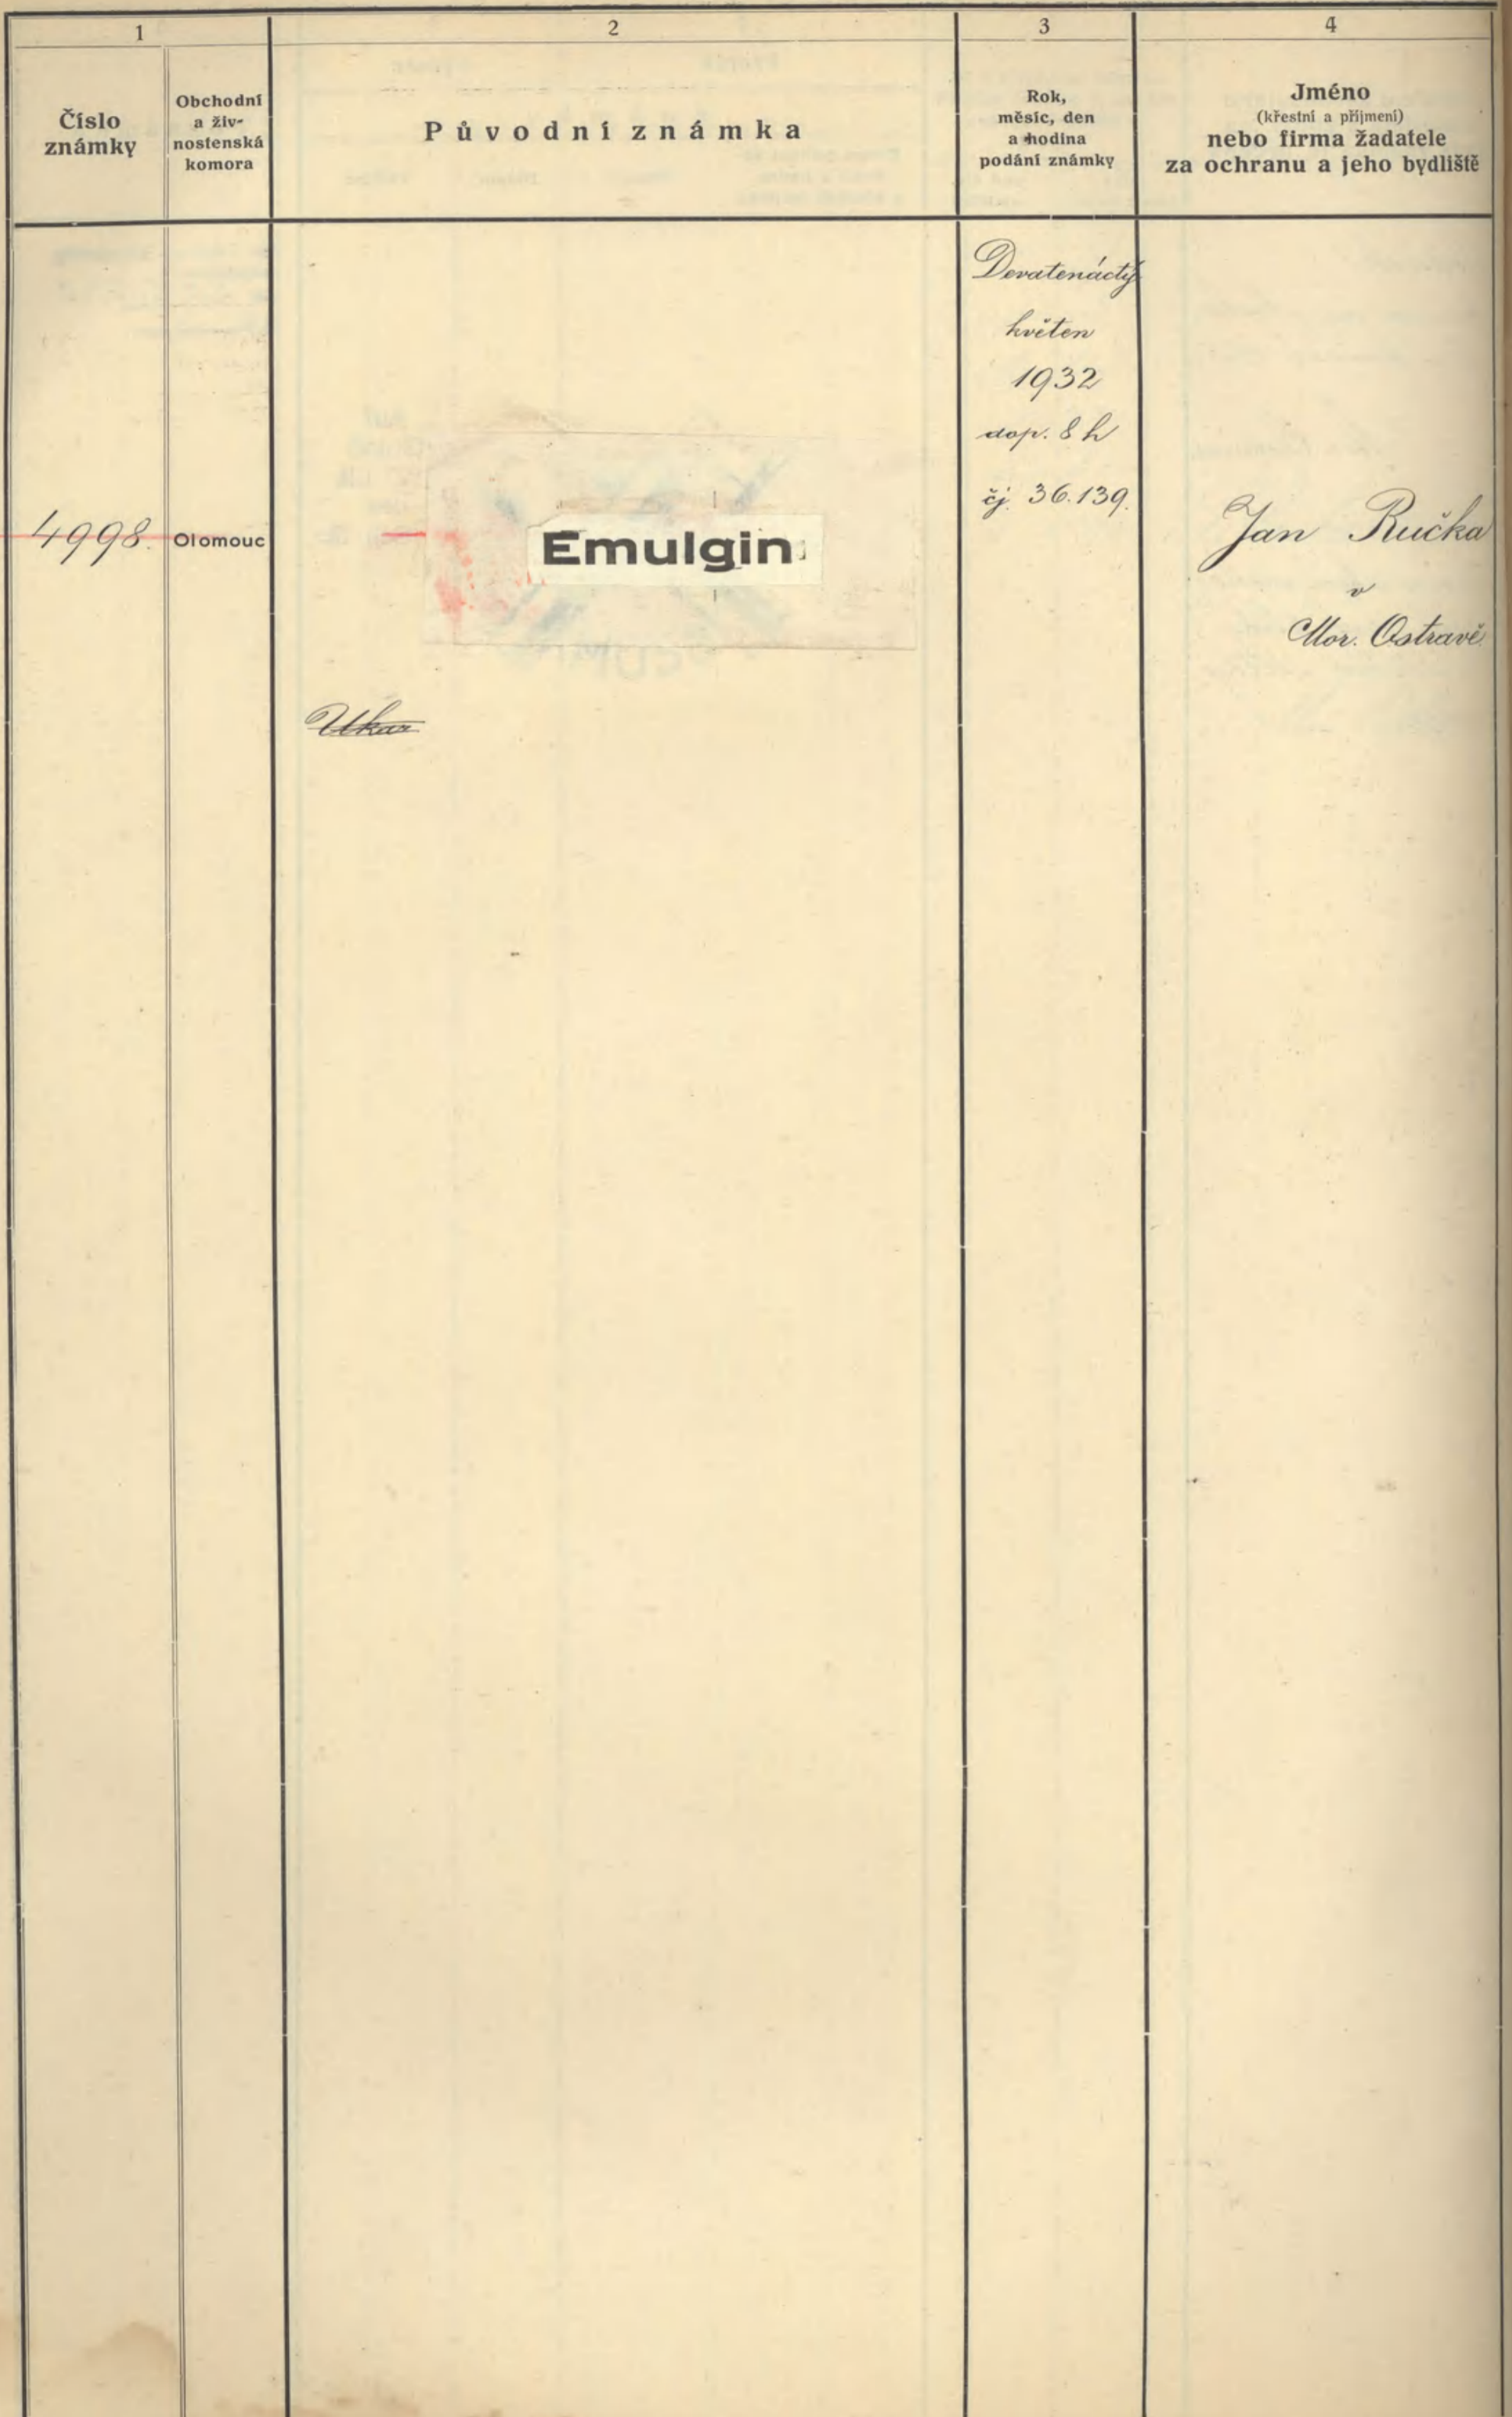 1
2
3
4
Číslo
známky
Obchodní
a živ-
nostenská
komora
Původní známka
Rok,
měsíc, den
a hodina
podání známky
Jméno
(křestní a příjmení)
nebo firma žadatele
za ochranu a jeho bydliště
Devatenáctý
květen
1932
dop. 8 h
čj. 36.139.
4998.
Olomouc
Emulgin
Jan Ručka
v
Mor. Ostravě.